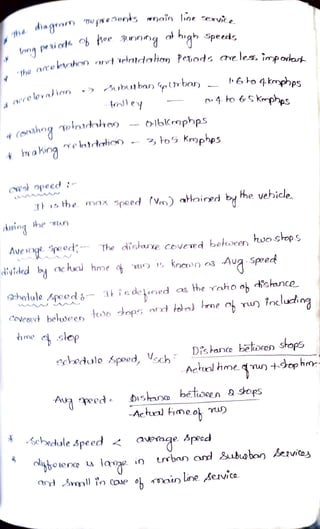 * The diagram represents main line service
* long periods of free running at high speeds
- the acceleration and retardation Periods are less important
* acceleration -> Suburban / urban — 1.6 to 4 kmphps
trolley — to 6.5 kmphps
* coasting retardation — 0.16kmphps
* braking retardation — 3 to 5 kmphps
crest speed :-
It is the max speed (Vm) attained by the vehicle
during the run
Average Speed:- The distance covered between two stops
divided by actual time of run is known as Avg. speed
Schedule speed :- It is defined as the ratio of distance
covered between two stops and total time of run including
time of stop
schedule Speed, Vsch = Distance between stops
Actual time of run + stop time
Avg speed = Distance between 2 stops
Actual time of run
* Schedule speed < average speed
* difference is large in urban and Suburban Services
and Small in case of main line service